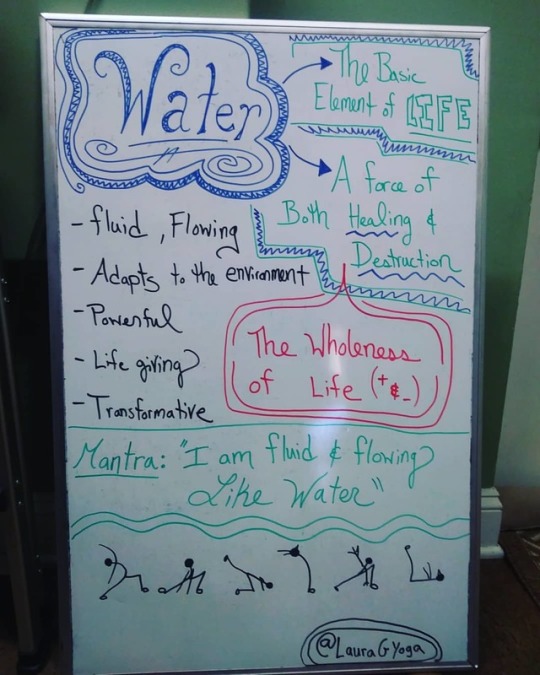 Water
The Basic
Element of LIFE
A force of
Both Healing &
Destruction
- fluid, Flowing
- Adapts to the environment
- Powerful
- Life giving
- Transformative
The Wholeness
of Life (+&-)
Mantra: "I am fluid & flowing
Like Water"
@LauraGYoga